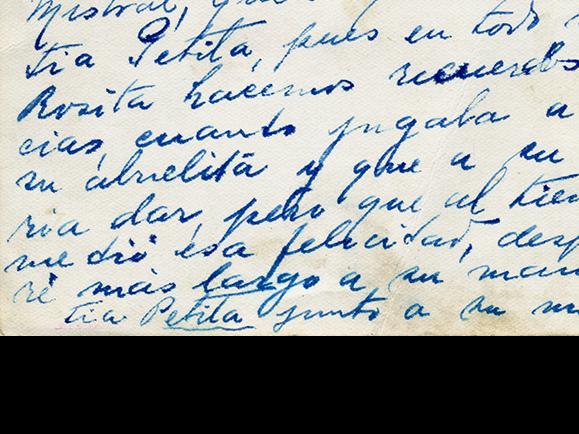 Mistral, que
tia Petita, pues en todo
Rosita hacemos recuerdos
cias, cuando jugaba a
su abuelita y que a su
ria dar, pero que al tien
me dió esa felicidad, desp
ré más largo a su mam
tia Petita junto a su m